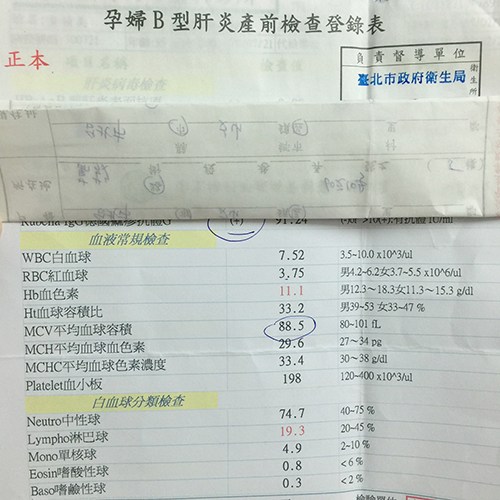 孕婦B型肝炎產前檢查登錄表
正本
負責督導單位
臺北市政府衛生局
衛生所
肝炎病毒檢查
Rubella IgG德國麻疹抗體G (+) 91.24
血液常規檢查
WBC白血球 7.52 3.5~10.0 x10^3/ul
RBC紅血球 3.75 男4.2~6.2女3.7~5.5 x10^6/ul
Hb血色素 11.1 男12.3~18.3女11.3~15.3 g/dl
Ht血球容積比 33.2 男39~53 女33~47 %
MCV平均血球容積 88.5 80~101 fL
MCH平均血球血色素 29.6 27~34 pg
MCHC平均血球色素濃度 33.4 30~38 g/dl
Platelet血小板 198 120~400 x10^3/ul
白血球分類檢查
Neutro中性球 74.7 40~75 %
Lympho淋巴球 19.3 20~45 %
Mono單核球 4.9 2~10 %
Eosin嗜酸性球 0.8 <6 %
Baso嗜鹼性球 0.3 <2 %